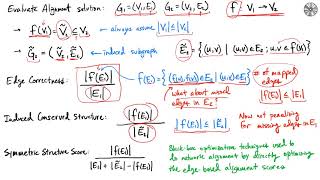 Evaluate Alignment solution: G₁ = (V₁, E₁) G₂ = (V₂, E₂) f: V₁ → V₂
→ f(V₁) = Ṽ₂ ⊆ V₂ → always assume |V₁| ≤ |V₂|
→ G̃₂ = (Ṽ₂, Ẽ₂) ← induced subgraph Ẽ₂ = {(u,v) | (u,v) ∈ E₂ ; u,v ∈ f(V₁)}
Edge Correctness: |f(E₁)| / |E₁| f(E₁) = {(f(u), f(v)) ∈ E₂ | (u,v) ∈ E₁} # of mapped edges
what about missed edges in E₂ |f(E₁)| ≤ |E₁|
Induced Conserved Structure: |f(E₁)| / |Ẽ₂| |f(E₁)| ≤ |Ẽ₂| Now not penalizing for missing edges in E₁
Symmetric Structure Score: |f(E₁)| / |E₁| + |Ẽ₂| - |f(E₁)|
Black-box optimization techniques used to
do network alignment by directly optimizing
the edge based alignment scores